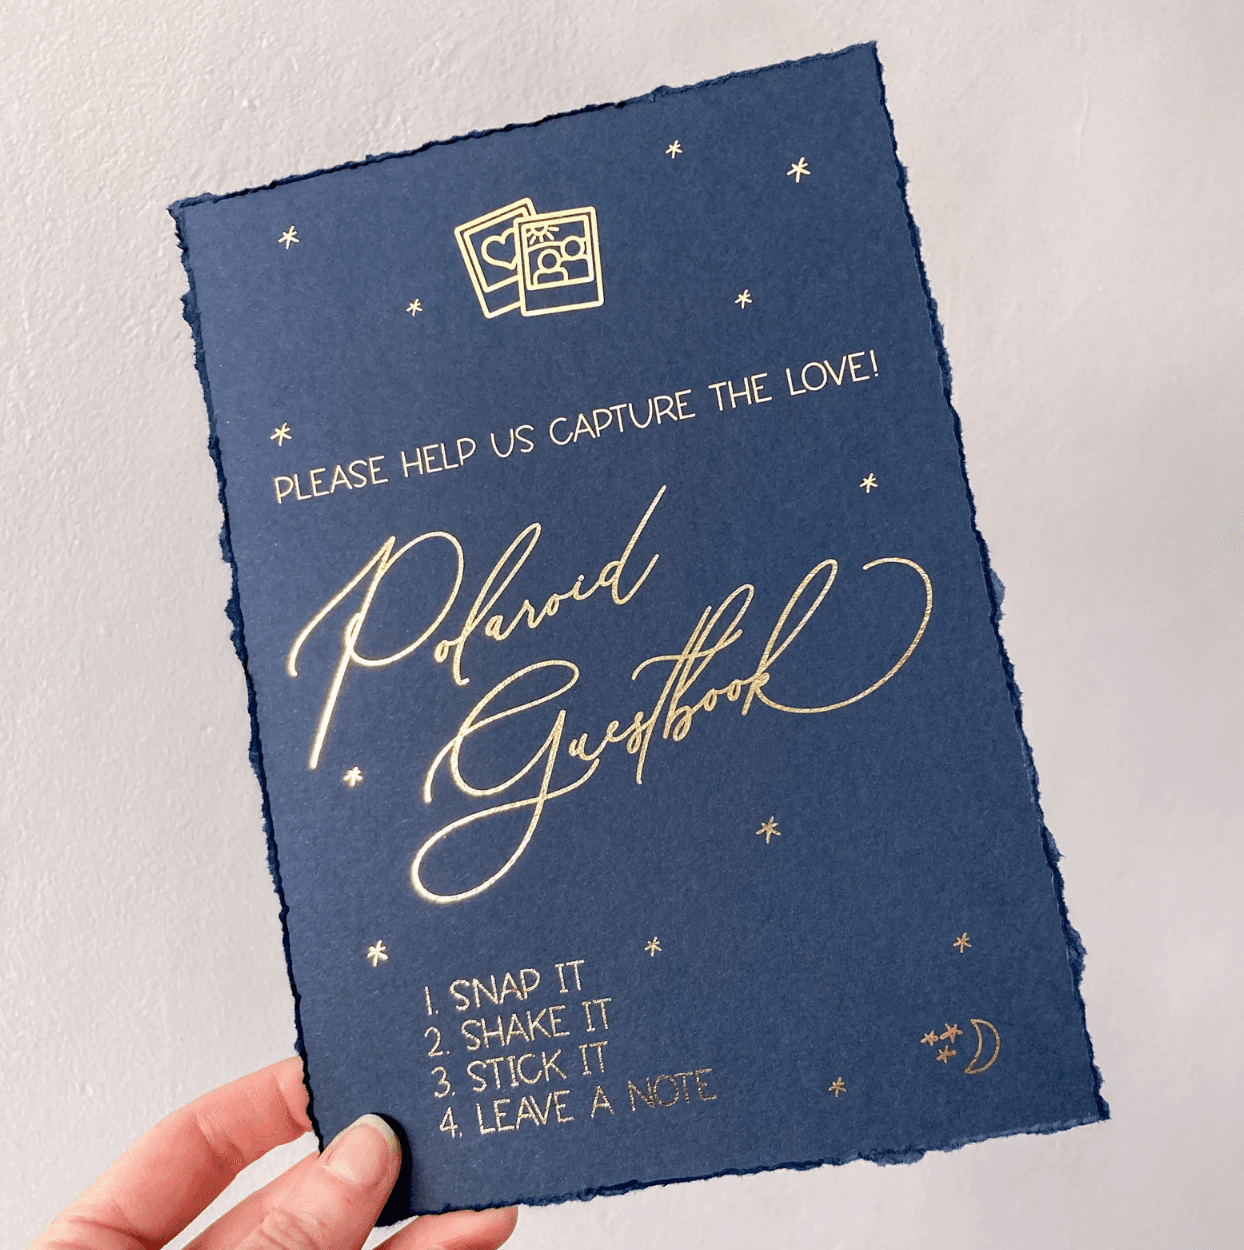 PLEASE HELP US CAPTURE THE LOVE!
Polaroid
Guestbook
1. SNAP IT
2. SHAKE IT
3. STICK IT
4. LEAVE A NOTE